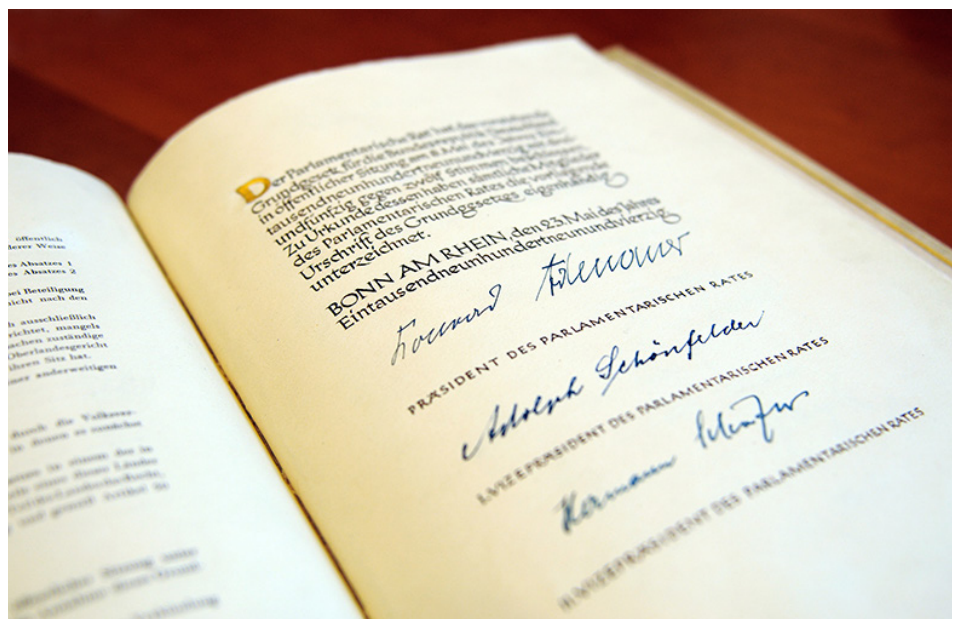 öffentlich
derer Weise
es Absatzes 1
es Absatzes 2
bei Beteiligung
nicht nach den
ch ausschließlich
richtet, mangels
achen zuständige
Oberlandesgericht
ihren Sitz hat.
mer anderweitigen
durch die Volksver-
Der Parlamentarische Rat hat das vorstehende
Grundgesetz für die Bundesrepublik Deutschland
in öffentlicher Sitzung am 8. Mai des Jahres Ein-
tausendneunhundertneunundvierzig mit drei-
undfünfzig gegen zwölf Stimmen beschlossen.
Zu Urkunde dessen haben sämtliche Mitglieder
des Parlamentarischen Rates die vorliegende
Urschrift des Grundgesetzes eigenhändig
unterzeichnet.
BONN AM RHEIN, den 23. Mai des Jahres
Eintausendneunhundertneunundvierzig
Konrad Adenauer
PRÆSIDENT DES PARLAMENTARISCHEN RATES
Adolph Schönfelder
I. VIZEPRÆSIDENT DES PARLAMENTARISCHEN RATES
Hermann Schäfer
II. VIZEPRÆSIDENT DES PARLAMENTARISCHEN RATES